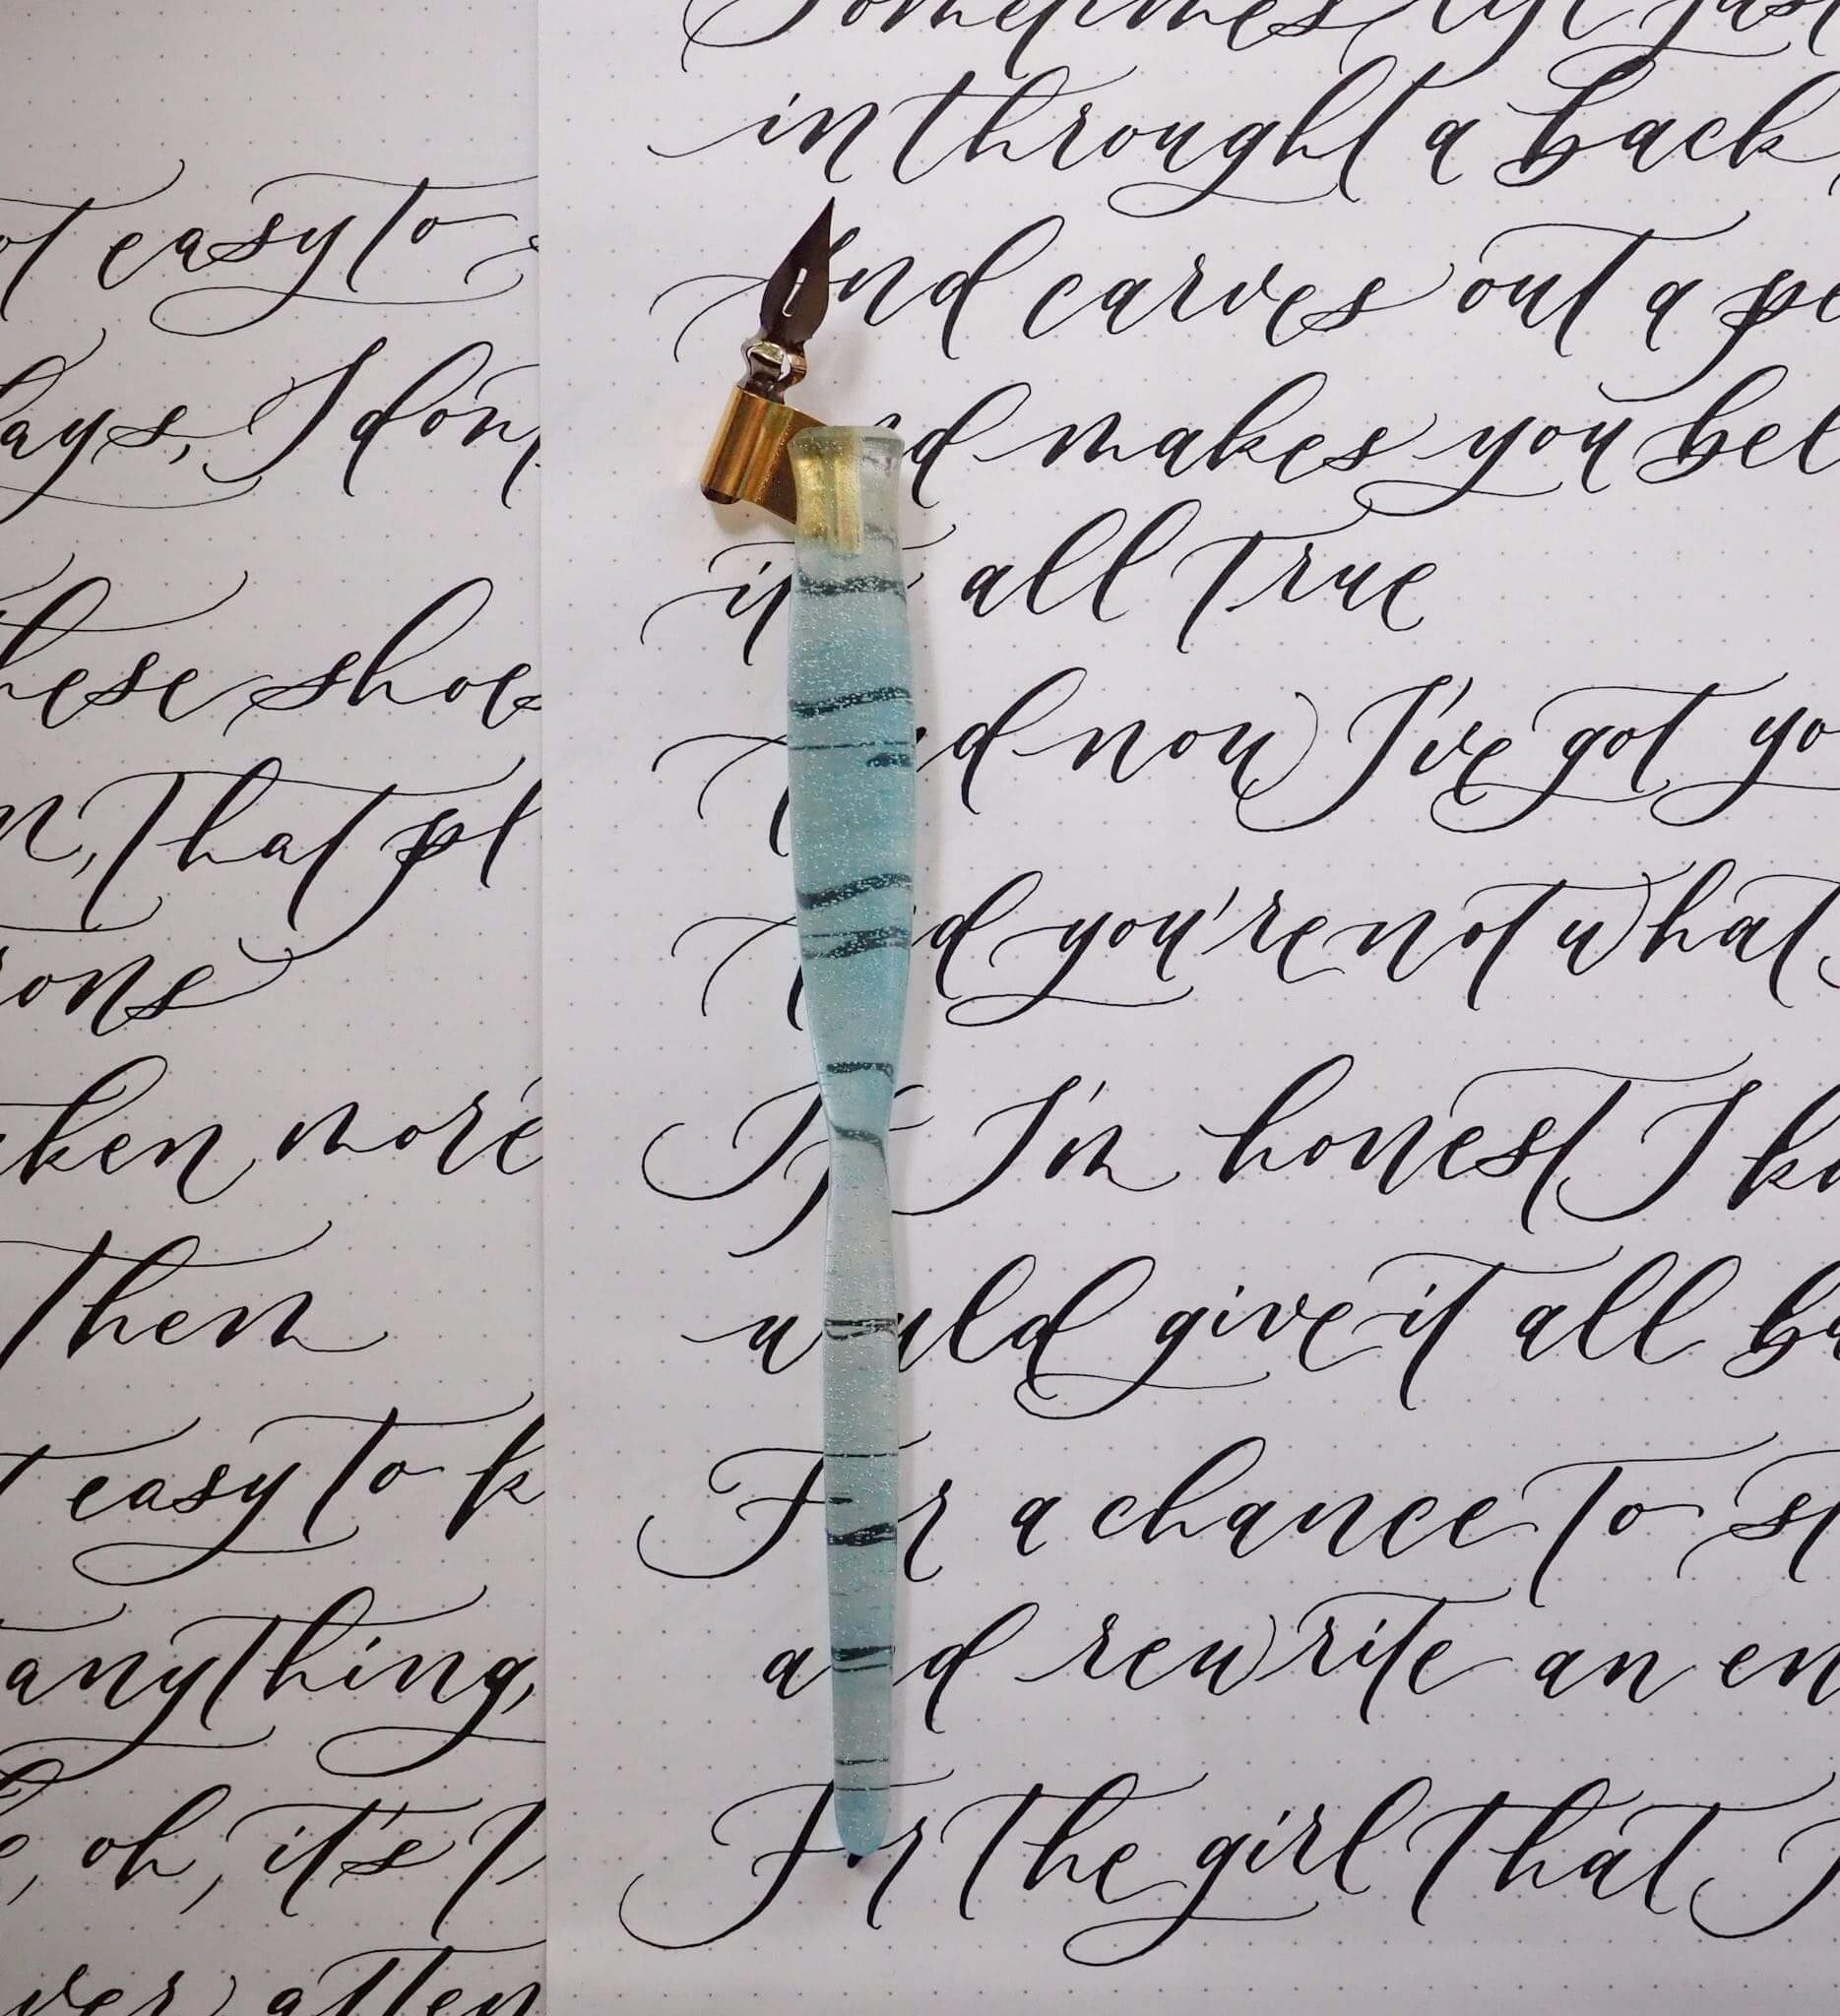 ot easy to
days, I don
hese shoes
n, that pl
rons
ken more
then
t easy to k
anything,
e, oh, it's t
ver atten
Sometimes life just
in throught a back
And carves out a pe
nd makes you bel
it all true
And now I've got yo
And you're not what
If I'm honest I k
would give it all ba
For a chance to st
and rewrite an en
For the girl that I